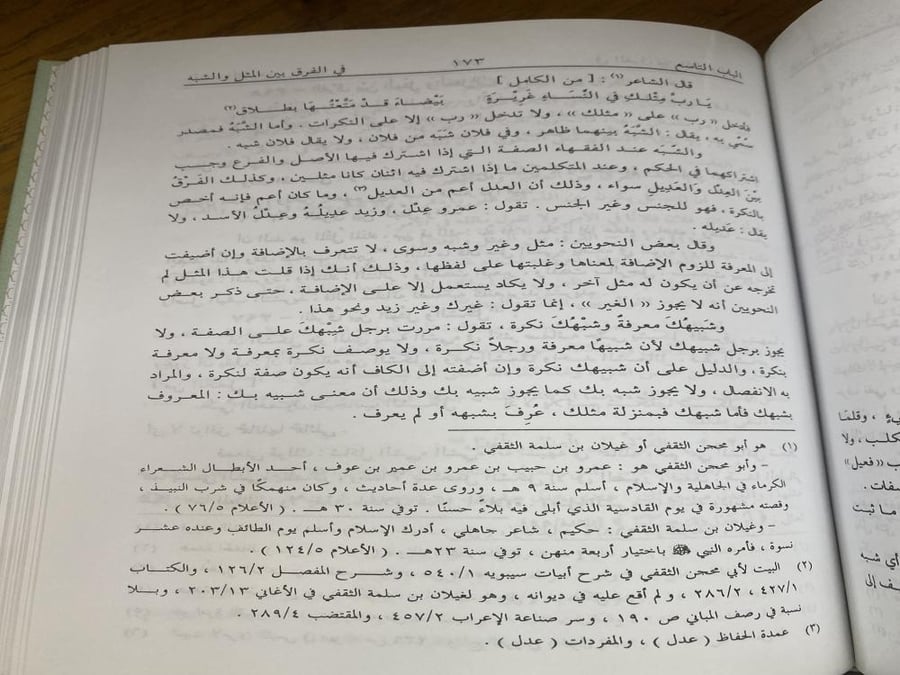 الباب التاسع ١٧٣ في الفرق بين المثل والشبه
قال الشاعر (١) : [ من الكامل ]
يَا رب مِثْلك فِي النِّسَاءِ غَرِيْرَةٍ بَيْضَاءَ قَدْ مَتَّعْتُهَا بِطَلاقِ (٢)
فأدخل « رب » على « مثلك » ، ولا تدخل « رب » إلا على النكرات . وأما الشَّبَهُ فمصدر
سُمِّي به ، يقال : الشَّبَهُ بينهما ظاهر ، وفي فلان شَبَه من فلان ، ولا يقال فلان شبه .
والشَّبَه عند الفقهاء الصفة التي إذا اشترك فيها الأصل والفرع وجب
اشتراكهما في الحكم ، وعند المتكلمين ما إذا اشترك فيه اثنان كانا مثلين ، وكذلك الفَرْقُ
بَيْنَ العِدْلِ وَالعَدِيلِ سواء ، وذلك أن العدل أعم من العديل (٣) ، وما كان أعم فإنه أخص
بالنكرة ، فهو للجنس وغير الجنس . تقول : عمرو عِدْل ، وزيد عديلُهُ وعِدْلُ الأسد ، ولا
يقال : عَدِيله .
وقال بعض النحويين : مثل وغير وشبه وسوى ، لا تتعرف بالإضافة وإن أضيفت
إلى المعرفة للزوم الإضافة لمعناها وغلبتها على لفظها ، وذلك أنك إذا قلت هذا المثل لم
تخرجه عن أن يكون له مثل آخر ، ولا يكاد يستعمل إلا على الإضافة ، حتى ذكر بعض
النحويين أنه لا يجوز « الغير » ، إنما تقول : غيرك وغير زيد ونحو هذا .
وشَبِيهُكَ معرفةٌ وشبْهُكَ نكرة ، تقول : مررت برجل شِبْهِكَ على الصفة ، ولا
يجوز برجل شبيهك لأن شبيهًا معرفة ورجلاً نكرة ، ولا يوصف نكرة بمعرفة ولا معرفة
بنكرة ، والدليل على أن شبهك نكرة وإن أضفته إلى الكاف أنه يكون صفة لنكرة ، والمراد
به الانفصال ، ولا يجوز شبه بك كما يجوز شبيه بك وذلك أن معنى شبيه بك : المعروف
بشبهك فأما شبهك فبمنزلة مثلك ، عُرِفَ بشبهه أو لم يعرف .
(١) هو أبو محجن الثقفي أو غيلان بن سلمة الثقفي .
- وأبو محجن الثقفي هو : عمرو بن حبيب بن عمرو بن عمير بن عوف ، أحد الأبطال الشعراء
الكرماء في الجاهلية والإسلام ، أسلم سنة ٩ هـ ، وروى عدة أحاديث ، وكان منهمكًا في شرب النبيذ ،
وقصته مشهورة في يوم القادسية الذي أبلى فيه بلاءً حسنًا . توفي سنة ٣٠ هـ . ( الأعلام ٧٦/٥ ) .
- وغيلان بن سلمة الثقفي : حكيم ، شاعر جاهلي ، أدرك الإسلام وأسلم يوم الطائف وعنده عشر
نسوة ، فأمره النبي ﷺ باختيار أربعة منهن ، توفي سنة ٢٣هـ . ( الأعلام ١٢٤/٥ ) .
(٢) البيت لأبي محجن الثقفي في شرح أبيات سيبويه ٥٤٠/١ ، وشرح المفصل ١٢٦/٢ ، والكتاب
٤٢٧/١ ، ٢٨٦/٢ ، ولم أقع عليه في ديوانه ، وهو لغيلان بن سلمة الثقفي في الأغاني ٢٠٣/١٣ ، وبلا
نسبة في رصف المباني ص ١٩٠ ، وسر صناعة الإعراب ٤٥٧/٢ ، والمقتضب ٢٨٩/٤ .
(٣) عمدة الحفاظ ( عدل ) ، والمفردات ( عدل ) .
، وقلمَا
ب « فعيل »
صفات .
ما ثبت
أي شبه